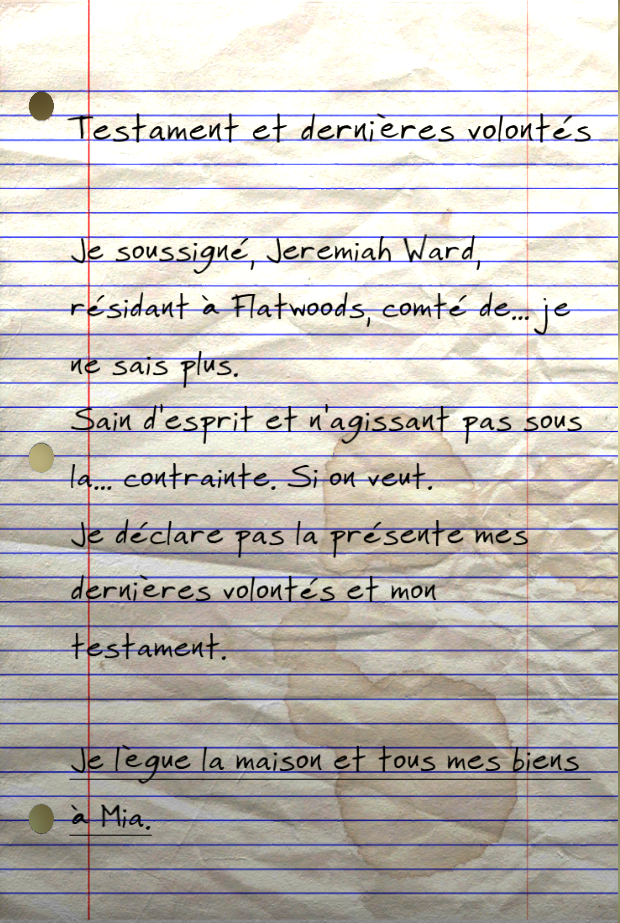 Testament et dernières volontés
Je soussigné, Jeremiah Ward,
résidant à Flatwoods, comté de... je
ne sais plus.
Sain d'esprit et n'agissant pas sous
la... contrainte. Si on veut.
Je déclare pas la présente mes
dernières volontés et mon
testament.
Je lègue la maison et tous mes biens
à Mia.